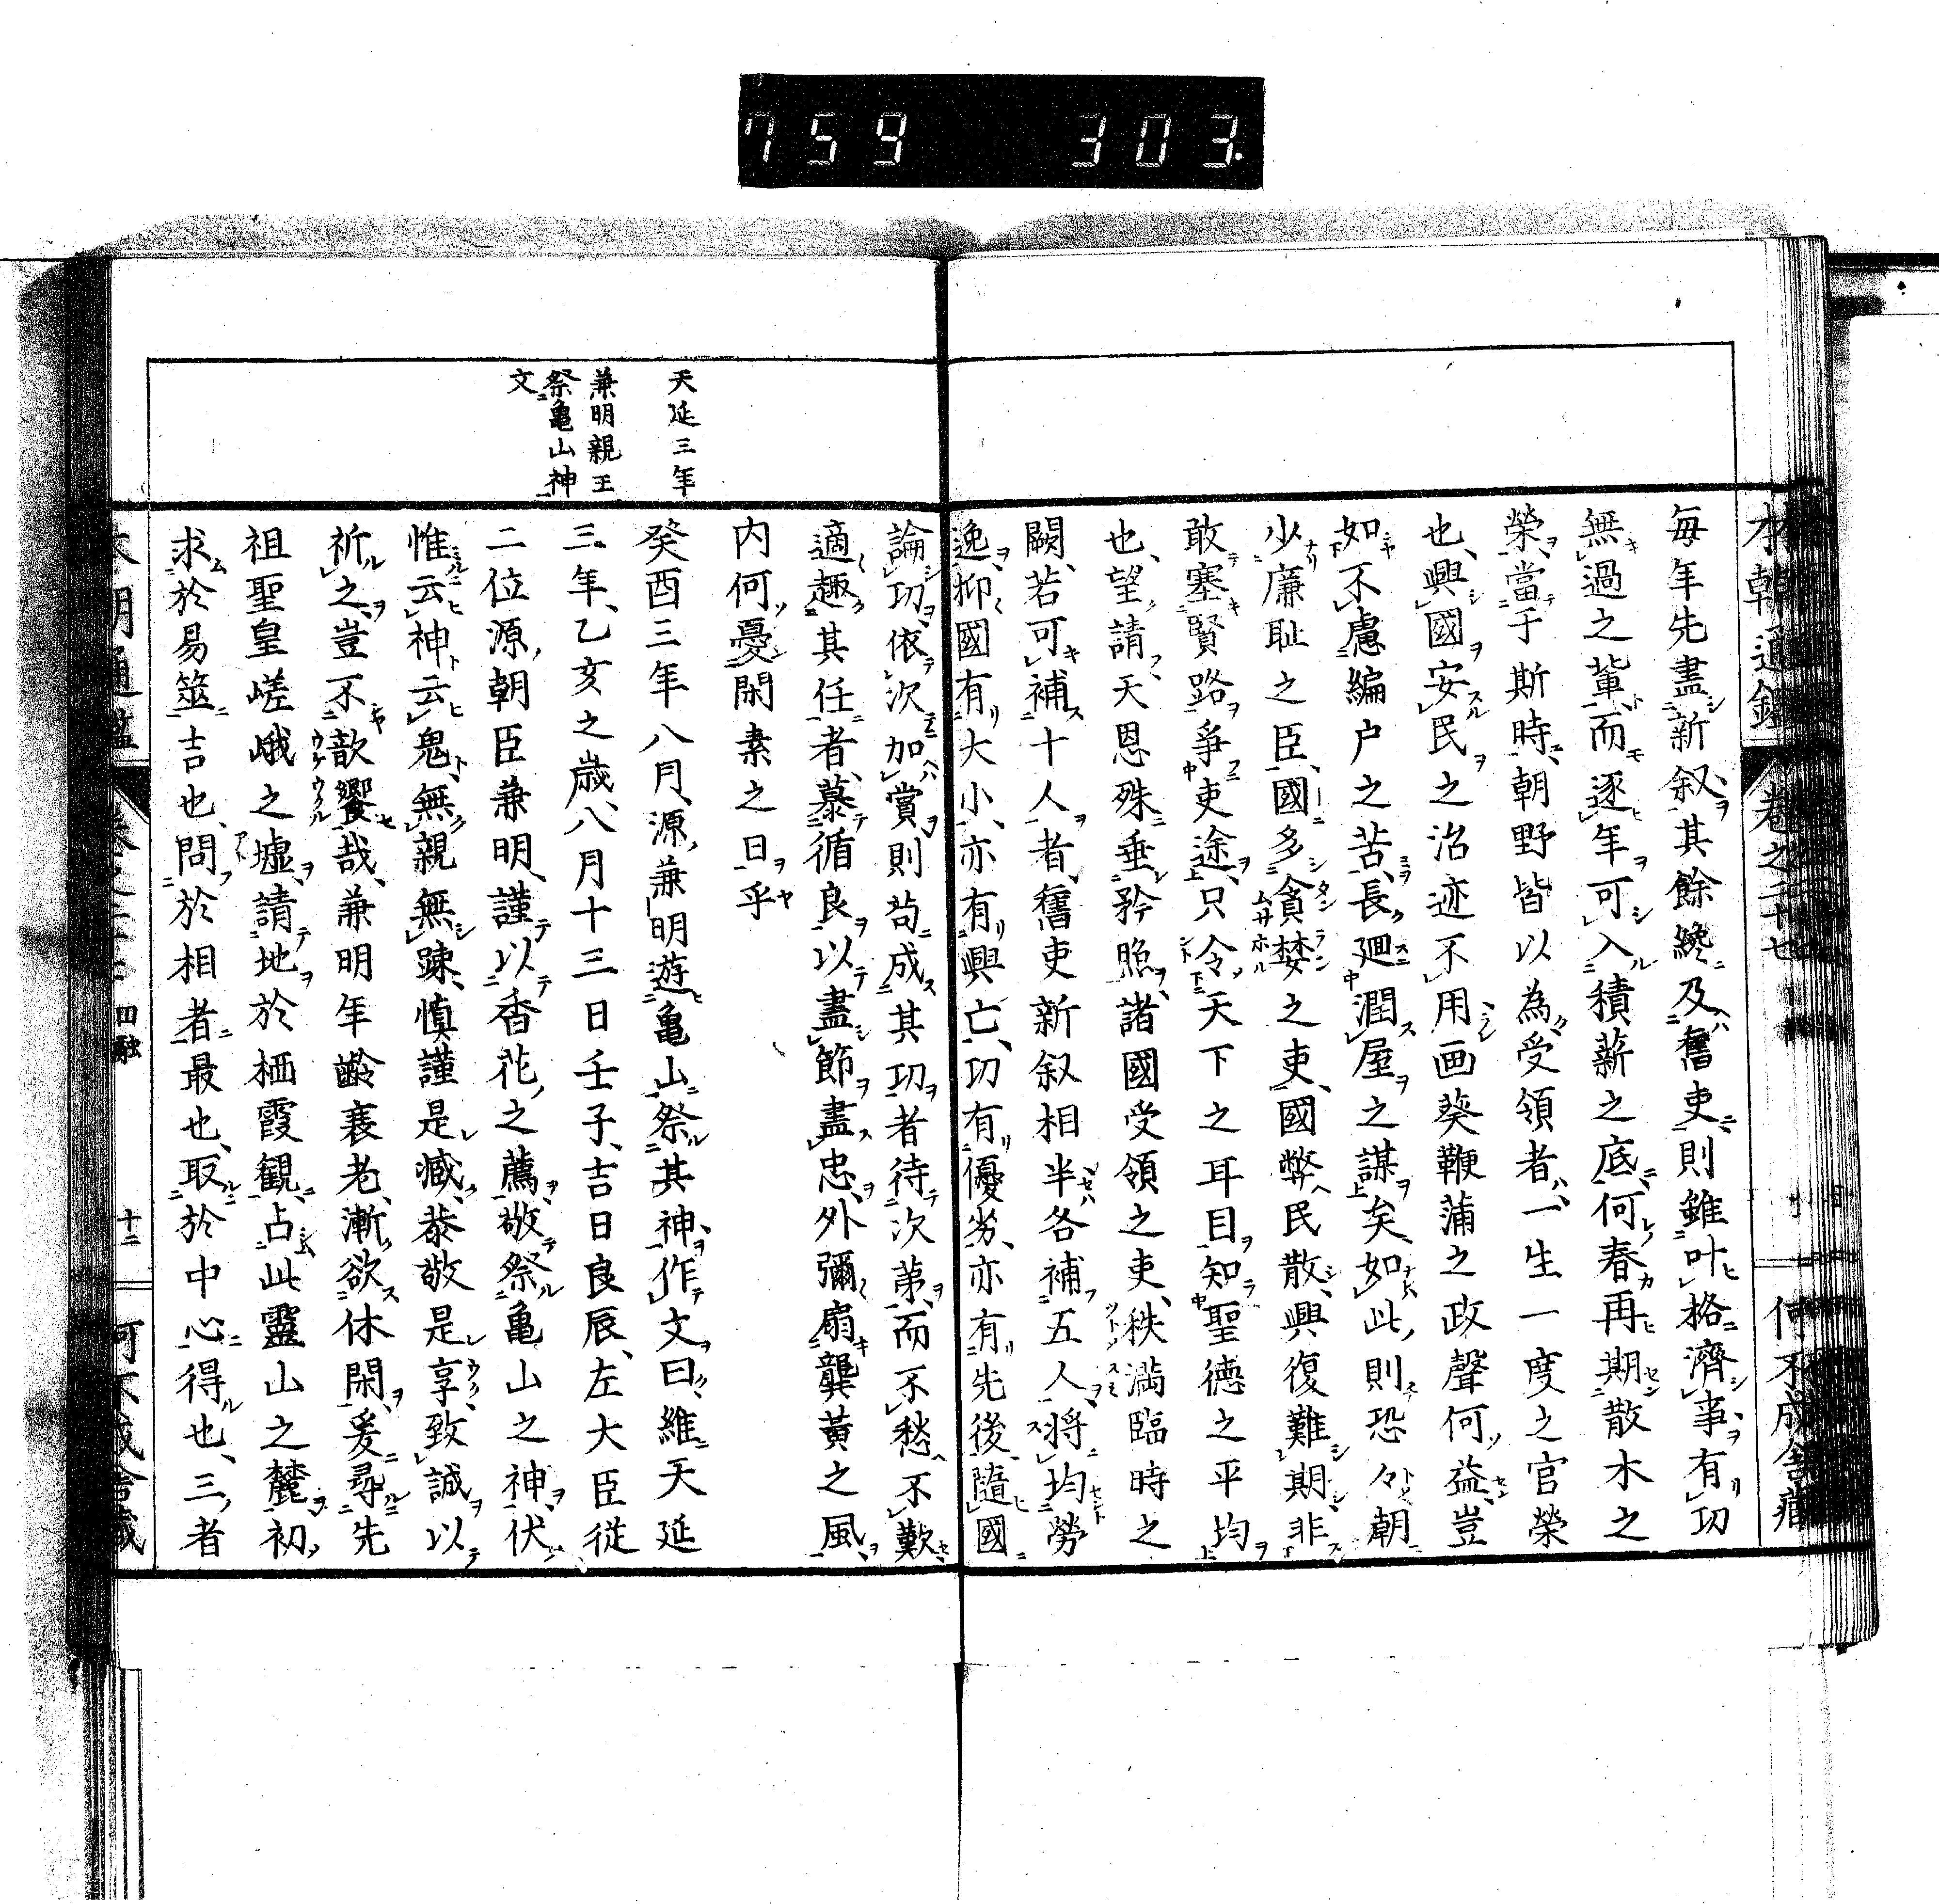 759 303.
本朝通鑑 卷之二十七
每年先盡新叙其餘纔及舊吏則雖叶格濟事有功
無過之輩而逐年可入積薪之底何春再期散木之
榮當于斯時朝野皆以為受領者一生一度之官榮
也興國安民之治迹不用画葵鞭蒲之政聲何益豈
如不慮編户之苦長廻潤屋之謀矣如此則恐々朝
少廉耻之臣國多貪婪之吏國弊民散興復難期非
敢塞賢路爭吏途只令天下之耳目知聖德之平均
也望請天恩殊垂矜照諸國受領之吏秩滿臨時之
闕若可補十人者舊吏新叙相半各補五人將均勞
逸抑國有大小亦有興亡功有優劣亦有先後隨國
論功依次加賞則苟成其功者待次第而不愁不歎
適趣其任者慕循良以盡節盡忠外彌扇龔黃之風
内何憂閑素之日乎
天延三年
兼明親王
祭亀山神
文
癸酉三年八月源兼明遊亀山祭其神作文曰維天延
三年乙亥之歲八月十三日壬子吉日良辰左大臣従
二位源朝臣兼明謹以香花之薦敬祭亀山之神伏
惟云神云鬼無親無踈慎謹是臧恭敬是享致誠以
祈之豈不歆饗哉兼明年齡衰老漸欲休閑爰尋先
祖聖皇嵯峨之墟請地於栖霞観占此靈山之麓初
求於易筮吉也問於相者最也取於中心得也三者
四融 十二